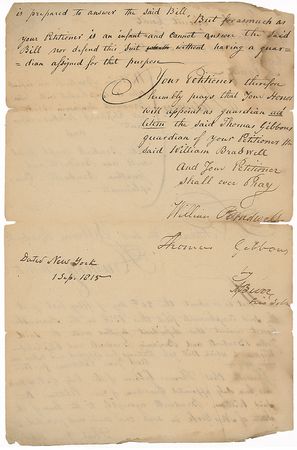 is prepared to answer the said Bill. But forasmuch as
your Petitioner is an infant and cannot answer the said
Bill nor defend this Suit without having a guar-
dian assigned for that purpose
Your Petitioner therefore
humbly prays that Your Honor
will appoint as guardian
the said Thomas Gibbons
guardian of your Petitioner the
said William Bradwell
And Your Petitioner
shall ever Pray
William Bradwell
Thomas Gibbons
by
A Burr
Dated New York
1 Sep. 1815